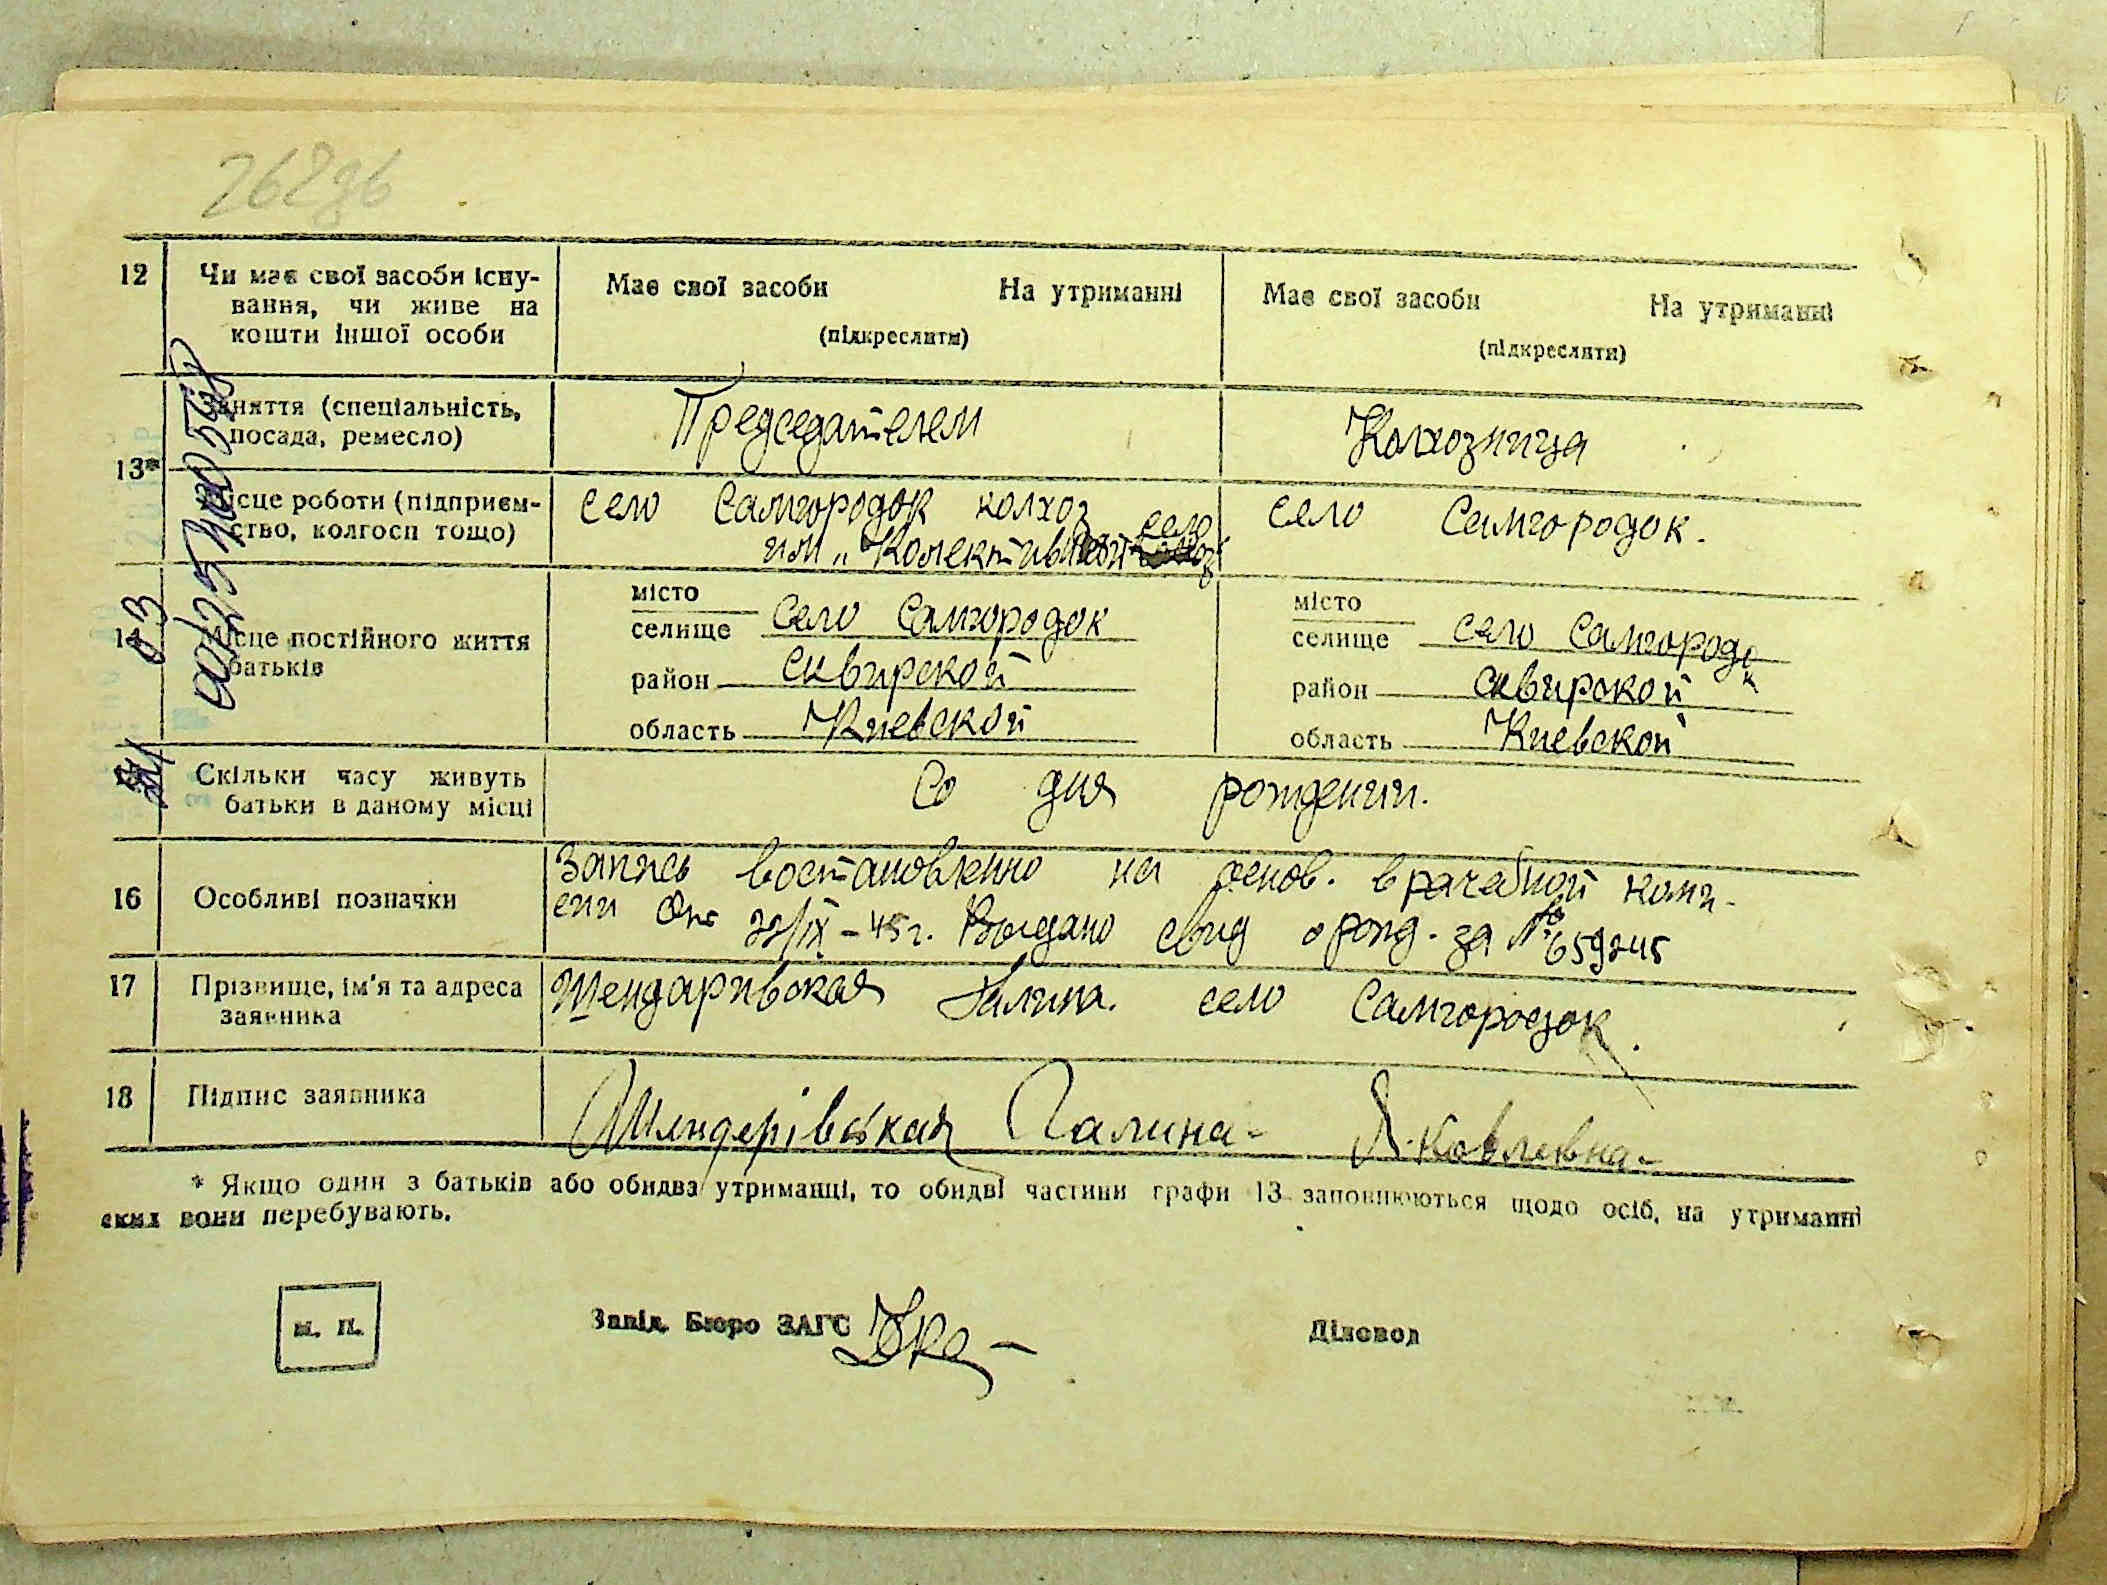 262зв
12 Чи має свої засоби існу-
вання, чи живе на
кошти іншої особи
Має свої засоби На утриманні
(підкреслити)
Має свої засоби На утриманні
(підкреслити)
13*
Заняття (спеціальність,
посада, ремесло)
Председателем
Колхозница
Місце роботи (підприєм-
ство, колгосп тощо)
село Самгородок колхоз
им „Колективный
село
село Самгородок.
14 Місце постійного життя
батьків
місто
селище село Самгородок
район сквирской
область Киевской
місто
селище село Самгородок
район сквирской
область Киевской
15 Скільки часу живуть
батьки в даному місці
Со дня рождении.
16 Особливі позначки
Запись востановленно на основ. врачебной коми-
сии от 22/IX-45г. Выдано свид о рожд. за № 659245
17 Прізвище, ім'я та адреса
заявника
Шендаривская Галина. село Самгородок.
18 Підпис заявника
Шендерівская Галина Яковлевна
* Якщо один з батьків або обидва утриманці, то обидві частини графи 13 заповнюються щодо осіб, на утриманні
яких вони перебувають.
м. п.
Завід. Бюро ЗАГС
Діловод